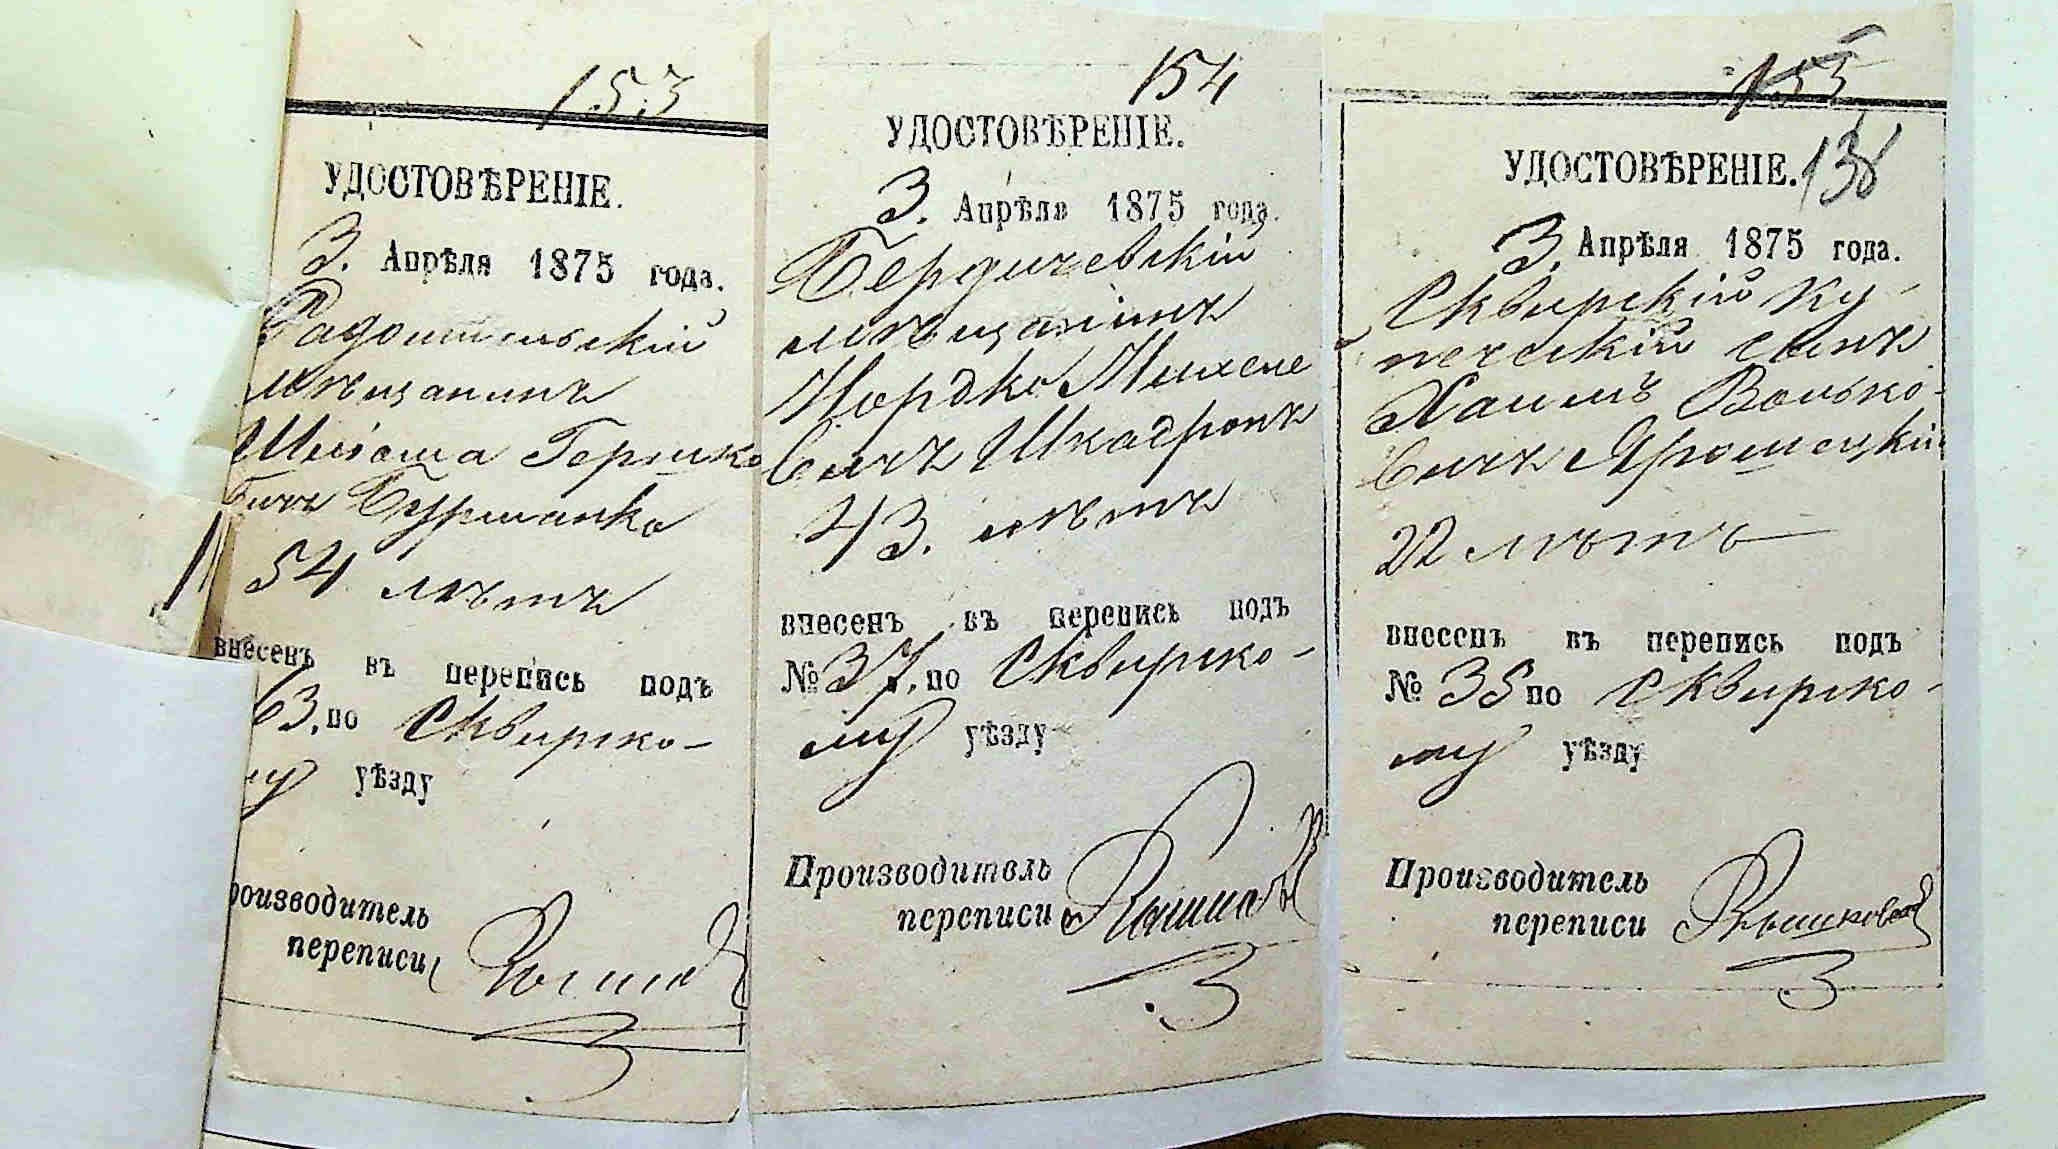 153
УДОСТОВѢРЕНІЕ.
3. Апрѣля 1875 года.
Радомысльскій
мѣщанинъ
Шлiома Гершко
вичъ Буршанко
54 лѣтъ
внесенъ въ перепись подъ
63. по Сквирско-
му уѣзду
роизводитель
переписи
154
УДОСТОВѢРЕНІЕ.
3. Апрѣля 1875 года.
Бердичевскій
мѣщанинъ
Мордко Михеле
вичъ Шкадронъ
43. лѣтъ
внесенъ въ перепись подъ
№ 37. по Сквирско-
му уѣзду
Производитель
переписи
155
138
УДОСТОВѢРЕНІЕ.
3. Апрѣля 1875 года.
Сквирскій ку-
печескій сынъ
Хаимъ Волько-
вичъ Ярошецкій
22 лѣтъ
внесенъ въ перепись подъ
№ 35 по Сквирско-
му уѣзду
Производитель
переписи